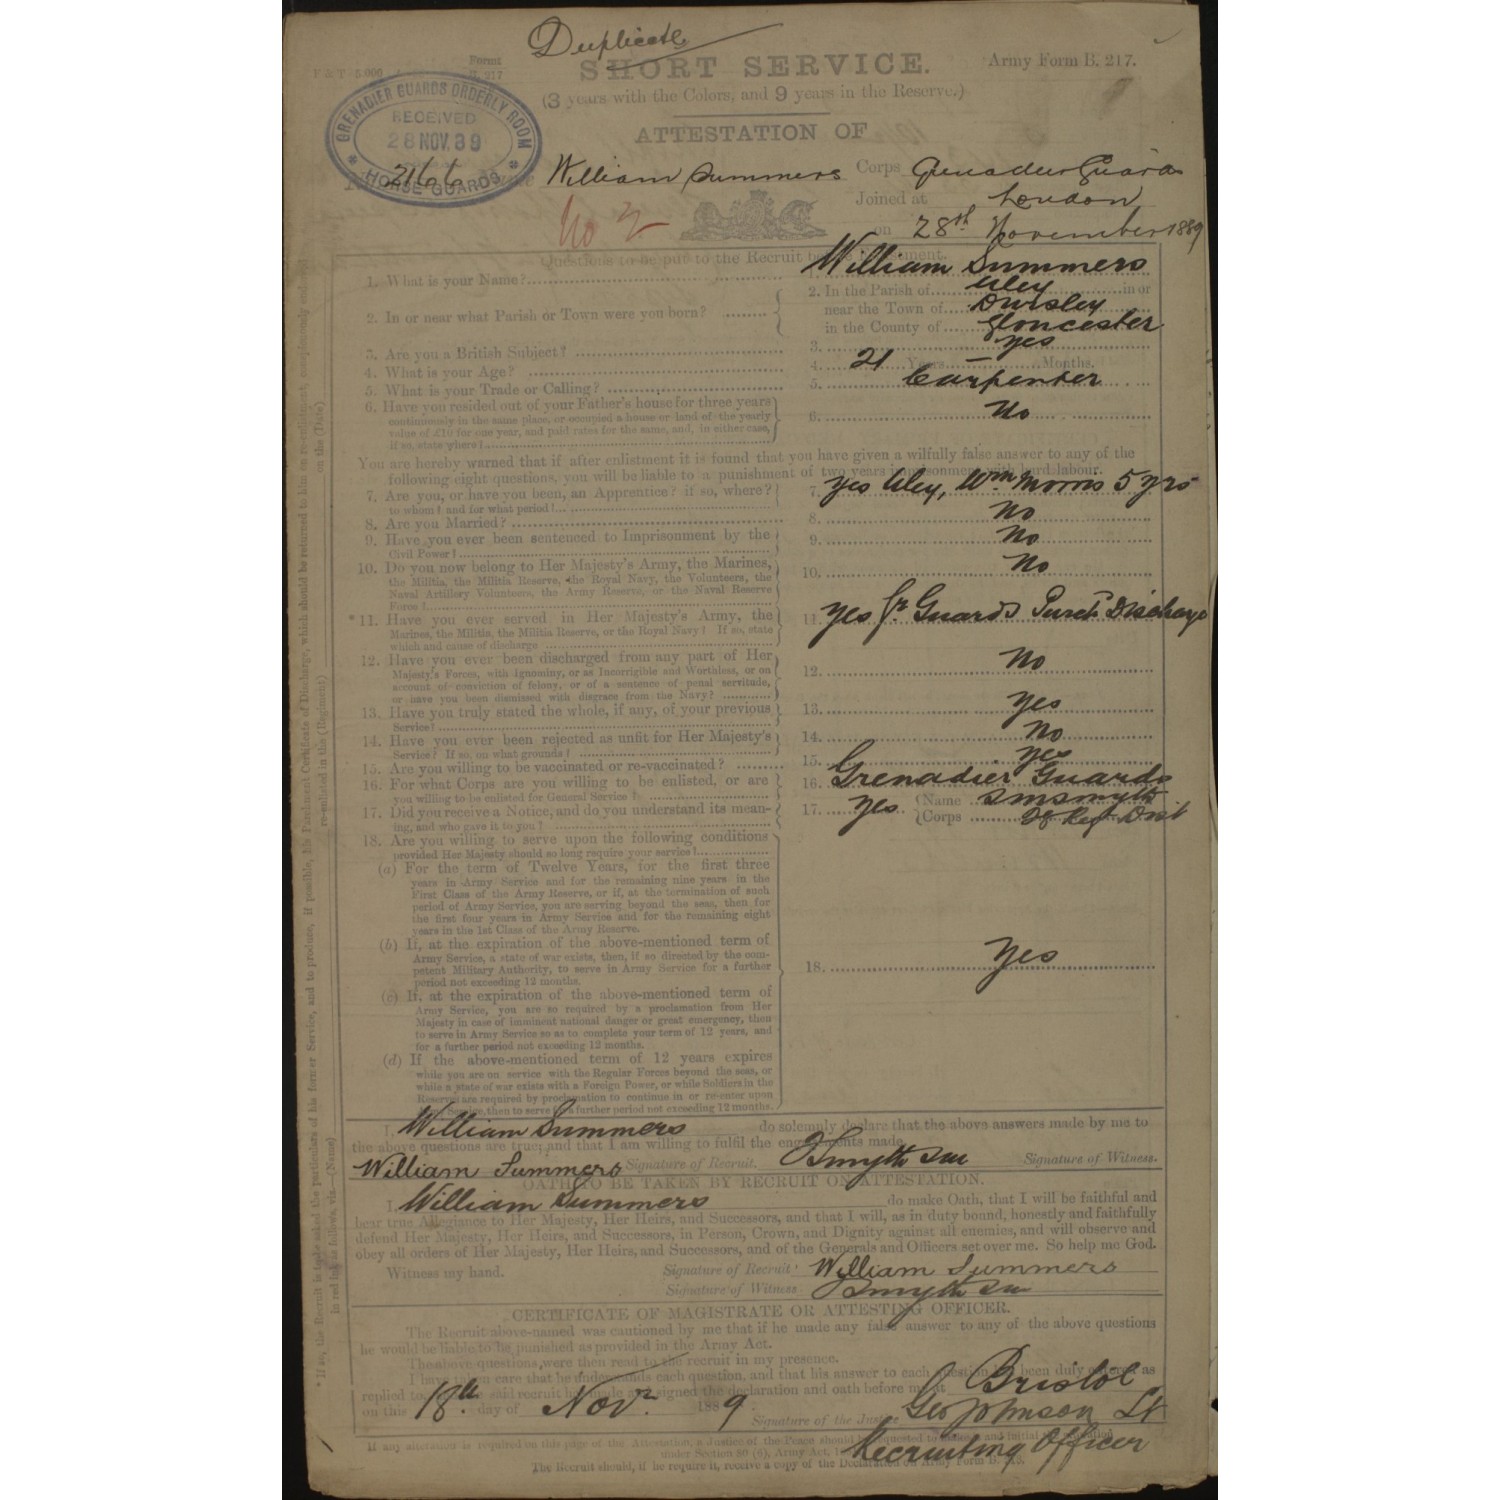 Duplicate
SHORT SERVICE.
Army Form B. 217.
(3 years with the Colors, and 9 years in the Reserve.)
GRENADIER GUARDS ORDERLY ROOM
RECEIVED
28 NOV. 89
HORSE GUARDS
ATTESTATION OF
2166 William Summers Corps Grenadier Guards
Joined at London
on 28th November 1889
No 2
Questions to be put to the Recruit
1. What is your Name? 1. William Summers
2. In or near what Parish or Town were you born? 2. In the Parish of Uley in or
near the Town of Dursley
in the County of Gloucester
3. Are you a British Subject? 3. yes
4. What is your Age? 4. 21 Years Months.
5. What is your Trade or Calling? 5. Carpenter
6. Have you resided out of your Father's house for three years
continuously in the same place, or occupied a house or land of the yearly
value of £10 for one year, and paid rates for the same, and, in either case,
if so, state where? 6. No
You are hereby warned that if after enlistment it is found that you have given a wilfully false answer to any of the
following eight questions, you will be liable to a punishment of two years imprisonment with hard labour.
7. Are you, or have you been, an Apprentice? if so, where?
to whom? and for what period? 7. yes Uley, Wm Morris 5 yrs
8. Are you Married? 8. No
9. Have you ever been sentenced to Imprisonment by the
Civil Power? 9. No
10. Do you now belong to Her Majesty's Army, the Marines,
the Militia, the Militia Reserve, the Royal Navy, the Volunteers, the
Naval Artillery Volunteers, the Army Reserve, or the Naval Reserve
Force? 10. No
* 11. Have you ever served in Her Majesty's Army, the
Marines, the Militia, the Militia Reserve, or the Royal Navy? If so, state
which and cause of discharge 11. yes Gr Guards Purch Discharge
12. Have you ever been discharged from any part of Her
Majesty's Forces, with Ignominy, or as Incorrigible and Worthless, or on
account of conviction of felony, or of a sentence of penal servitude,
or have you been dismissed with disgrace from the Navy? 12. No
13. Have you truly stated the whole, if any, of your previous
Service? 13. yes
14. Have you ever been rejected as unfit for Her Majesty's
Service? If so, on what grounds? 14. No
15. Are you willing to be vaccinated or re-vaccinated? 15. yes
16. For what Corps are you willing to be enlisted, or are
you willing to be enlisted for General Service? 16. Grenadier Guards
17. Did you receive a Notice, and do you understand its mean-
ing, and who gave it to you? 17. yes Name Smyth
Corps 28 Reg Dist
18. Are you willing to serve upon the following conditions
provided Her Majesty should so long require your service?
(a) For the term of Twelve Years, for the first three
years in Army Service and for the remaining nine years in the
First Class of the Army Reserve, or if, at the termination of such
period of Army Service, you are serving beyond the seas, then for
the first four years in Army Service and for the remaining eight
years in the 1st Class of the Army Reserve.
(b) If, at the expiration of the above-mentioned term of
Army Service, a state of war exists, then, if so directed by the com-
petent Military Authority, to serve in Army Service for a further
period not exceeding 12 months.
18. Yes
(c) If, at the expiration of the above-mentioned term of
Army Service, you are so required by a proclamation from Her
Majesty in case of imminent national danger or great emergency, then
to serve in Army Service so as to complete your term of 12 years, and
for a further period not exceeding 12 months.
(d) If the above-mentioned term of 12 years expires
while you are on service with the Regular Forces beyond the seas, or
while a state of war exists with a Foreign Power, or while Soldiers in the
Reserve are required by proclamation to continue in or re-enter upon
Service, then to serve for a further period not exceeding 12 months.
I, William Summers do solemnly declare that the above answers made by me to
the above questions are true, and that I am willing to fulfil the engagements made.
William Summers Signature of Recruit. Smyth Signature of Witness.
OATH TO BE TAKEN BY RECRUIT ON ATTESTATION.
I, William Summers do make Oath, that I will be faithful and
bear true Allegiance to Her Majesty, Her Heirs, and Successors, and that I will, as in duty bound, honestly and faithfully
defend Her Majesty, Her Heirs, and Successors, in Person, Crown, and Dignity against all enemies, and will observe and
obey all orders of Her Majesty, Her Heirs, and Successors, and of the Generals and Officers set over me. So help me God.
Witness my hand. Signature of Recruit William Summers
Signature of Witness Smyth
CERTIFICATE OF MAGISTRATE OR ATTESTING OFFICER.
The Recruit above-named was cautioned by me that if he made any false answer to any of the above questions
he would be liable to be punished as provided in the Army Act.
The above questions were then read to the recruit in my presence.
I have taken care that he understands each question, and that his answer to each question has been duly entered as
replied to, said recruit has made and signed the declaration and oath before me at Bristol
on this 18th day of Novr. 1889.
Signature of the Justice Geo Johnson Lt
Recruiting Officer
If any alteration is required on this page of the Attestation, a Justice of the Peace should be requested to
under Section 80 (6), Army Act,
The Recruit should, if he require it, receive a copy of the Declaration on Army Form B.
* If so, the Recruit is to be asked the particulars of his former Service, and to produce, if possible, his Parchment Certificate of Discharge, which should be returned to him
in red ink as follows, viz.—(Name) re-enlisted in the (Regiment) on the (Date)